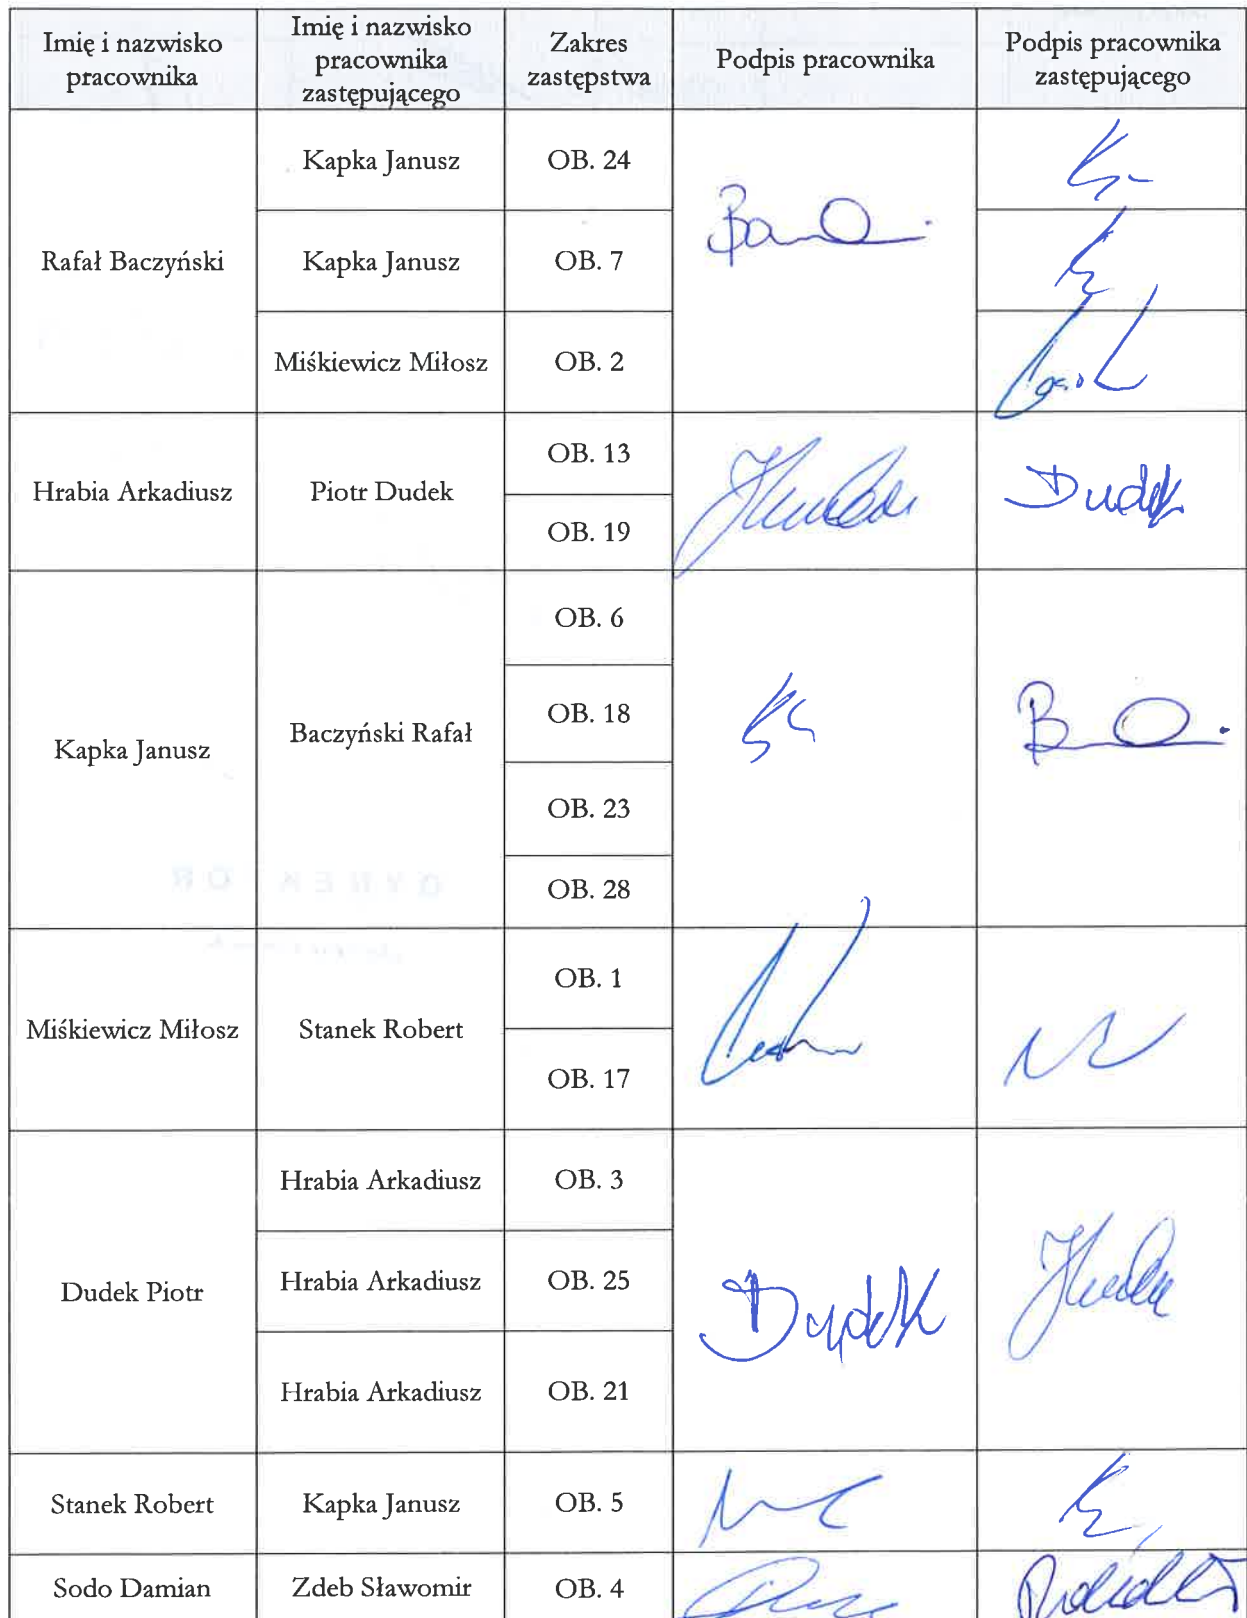 Imię i nazwisko
pracownika
Imię i nazwisko
pracownika
zastępującego
Zakres
zastępstwa
Podpis pracownika
Podpis pracownika
zastępującego
Rafał Baczyński
Kapka Janusz
OB. 24
Kapka Janusz
OB. 7
Miśkiewicz Miłosz
OB. 2
Hrabia Arkadiusz
Piotr Dudek
OB. 13
OB. 19
Dudek
Kapka Janusz
Baczyński Rafał
OB. 6
OB. 18
OB. 23
OB. 28
Miśkiewicz Miłosz
Stanek Robert
OB. 1
OB. 17
Dudek Piotr
Hrabia Arkadiusz
OB. 3
Hrabia Arkadiusz
OB. 25
Hrabia Arkadiusz
OB. 21
Dudek
Stanek Robert
Kapka Janusz
OB. 5
Sodo Damian
Zdeb Sławomir
OB. 4